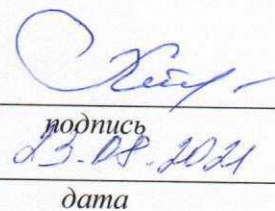 подпись
23.08.2021
дата